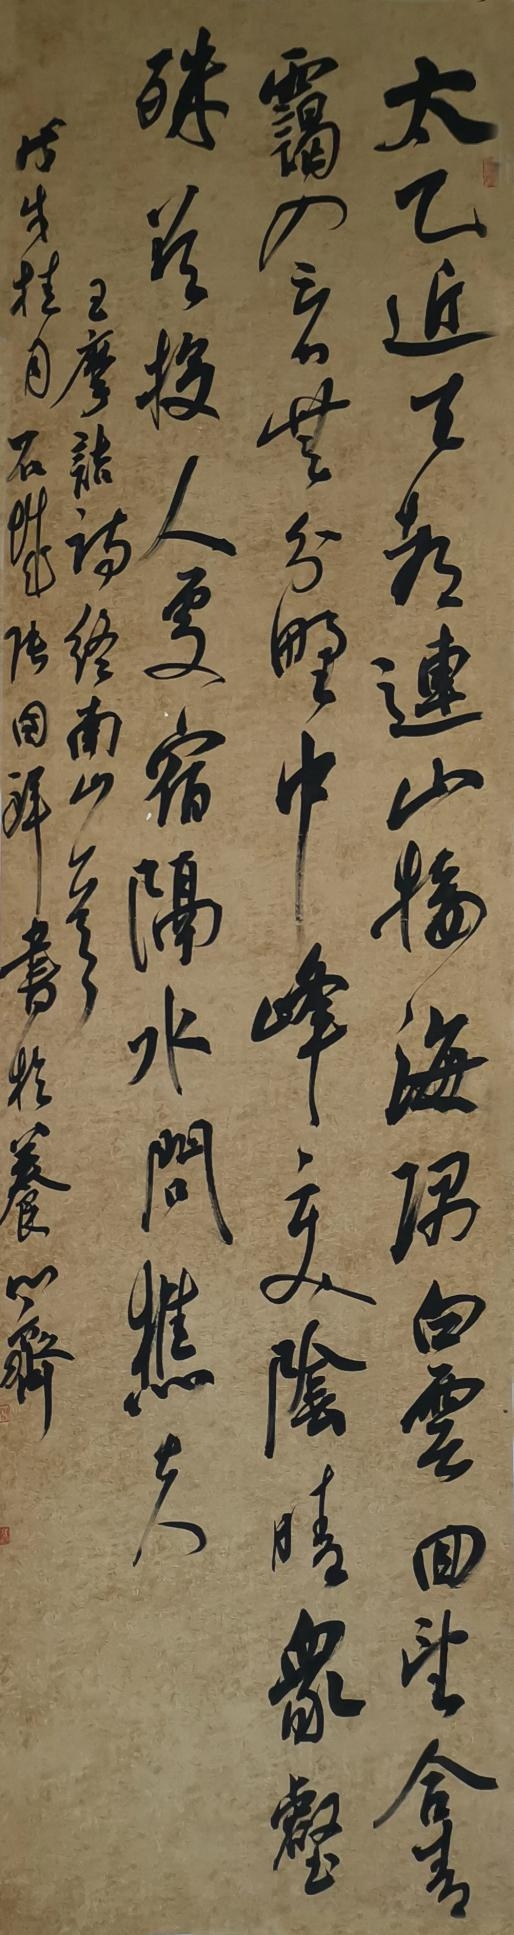 太乙近天都連山接海隅白雲回望合青
靄入看無分野中峰變陰晴衆壑
殊欲投人處宿隔水問樵夫
王摩詰詩終南山
戊戌桂月石城張国祥書於養心齋